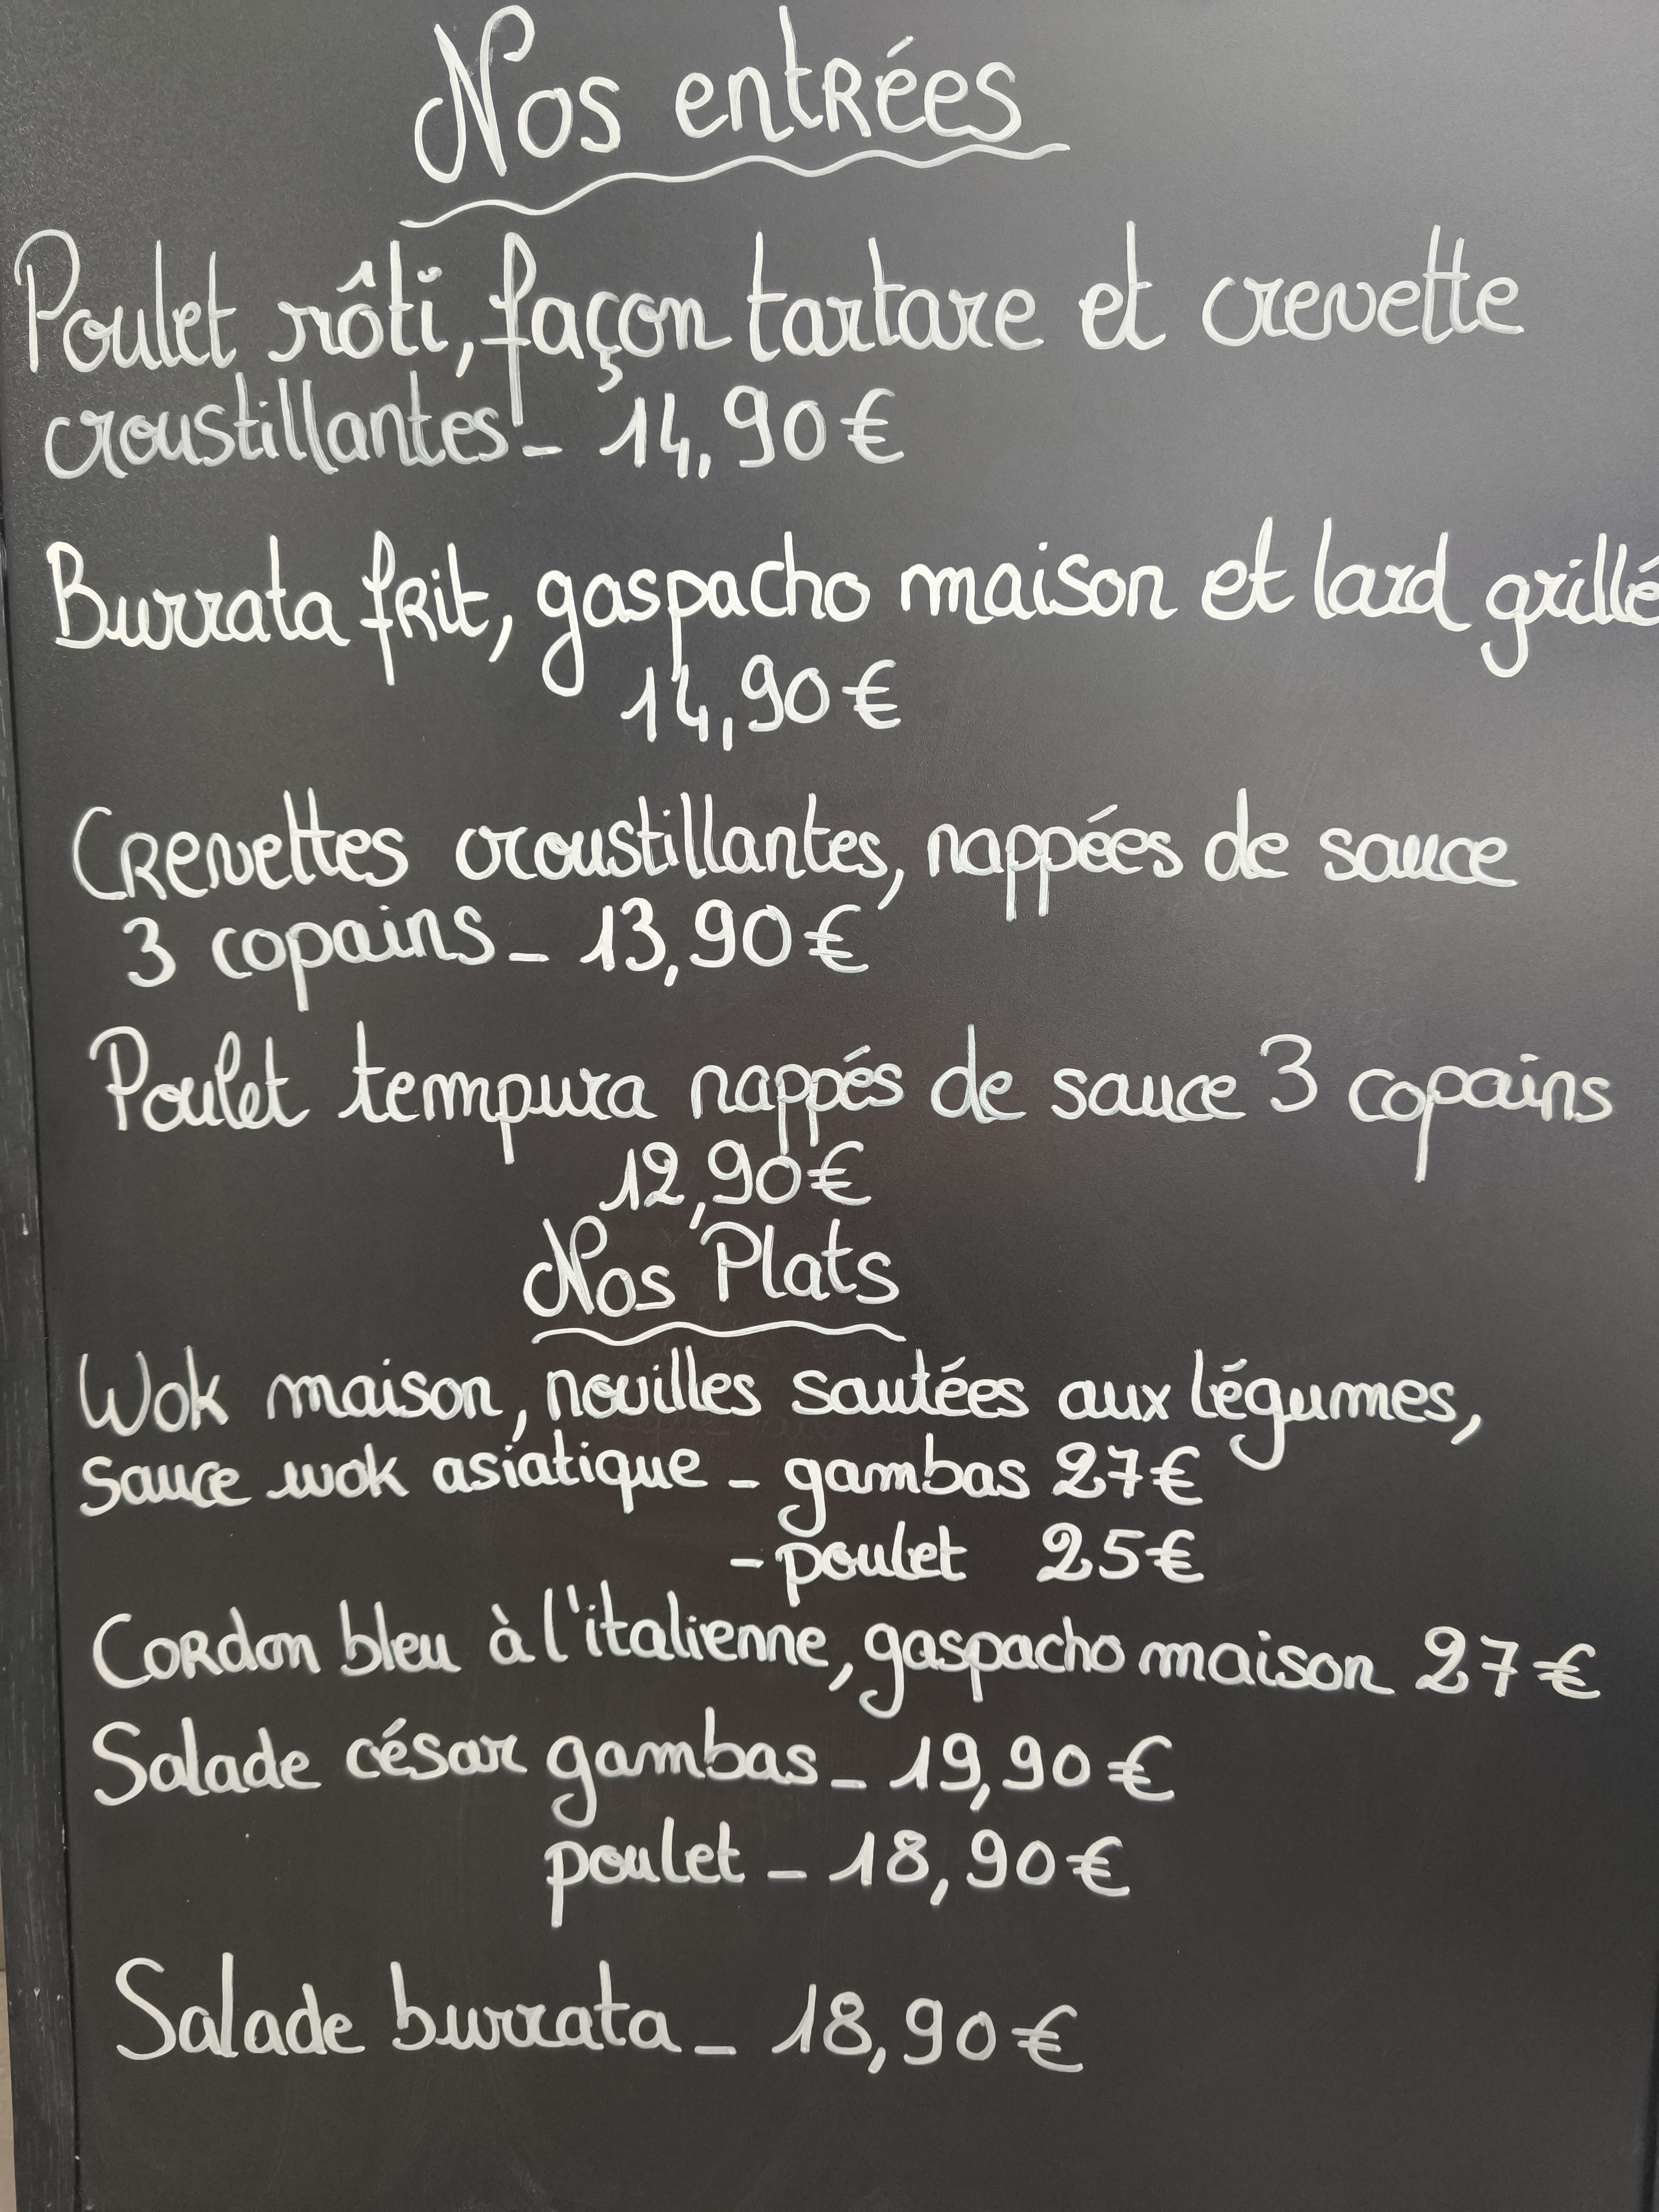 Nos entrées
Poulet rôti, façon tartare et crevette
croustillantes - 14,90€
Burrata frit, gaspacho maison et lard grillé
14,90€
Crevettes croustillantes, nappées de sauce
3 copains - 13,90€
Poulet tempura nappés de sauce 3 copains
12,90€
Nos Plats
Wok maison, nouilles sautées aux légumes,
sauce wok asiatique - gambas 27€
- poulet 25€
Cordon bleu à l'italienne, gaspacho maison 27€
Salade césar gambas - 19,90€
poulet - 18,90€
Salade burrata - 18,90€